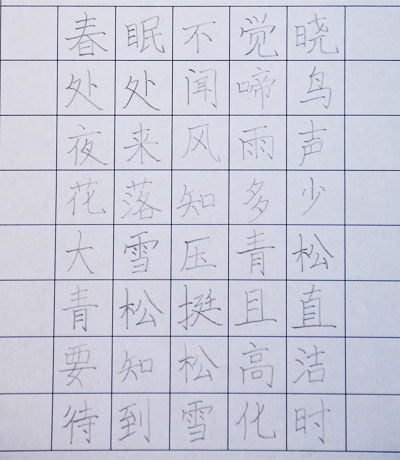 春眠不觉晓
处处闻啼鸟
夜来风雨声
花落知多少
大雪压青松
青松挺且直
要知松高洁
待到雪化时